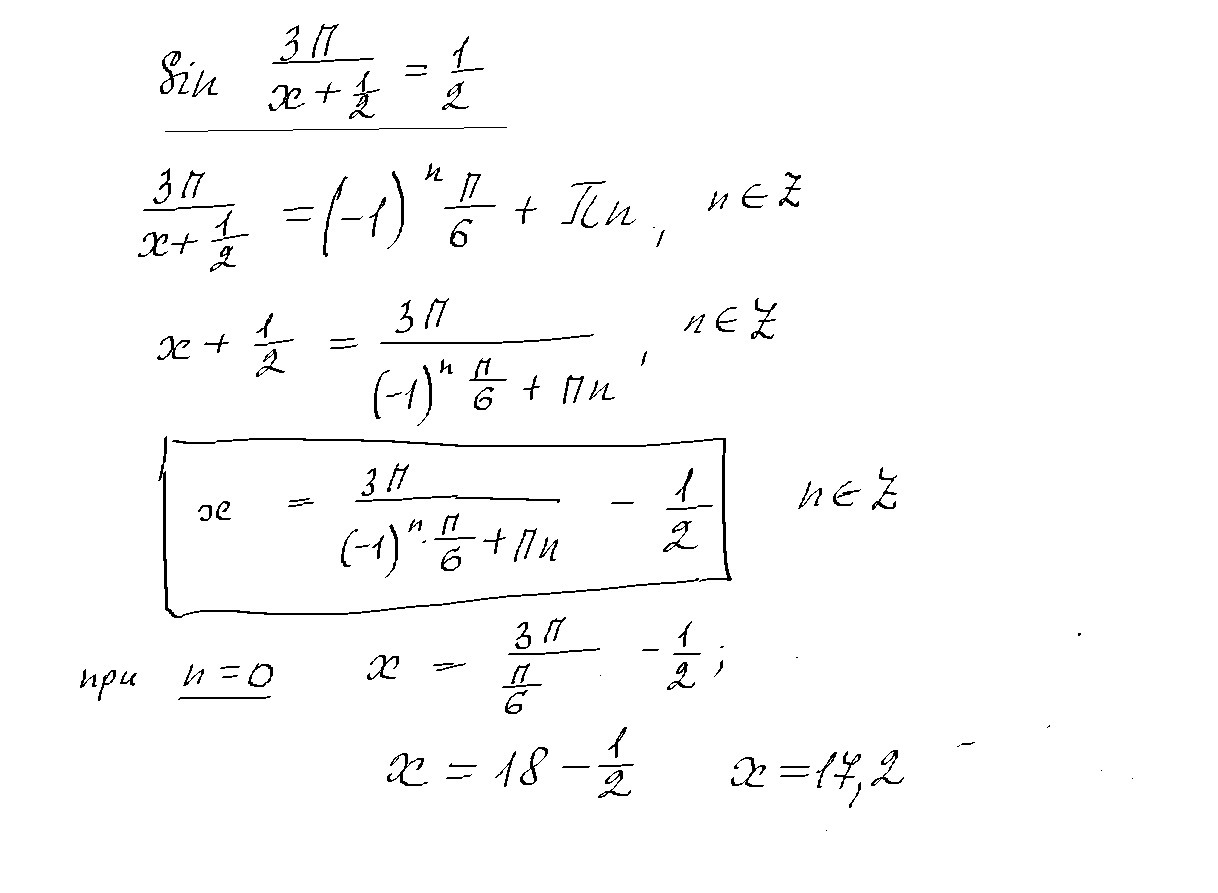 sin 3π/(x + 1/2) = 1/2
3π/(x + 1/2) = (-1)^n π/6 + πn, n ∈ Z
x + 1/2 = 3π/((-1)^n π/6 + πn), n ∈ Z
x = 3π/((-1)^n · π/6 + πn) - 1/2 n ∈ Z
при n = 0 x = 3π/(π/6) - 1/2;
x = 18 - 1/2 x = 17,2